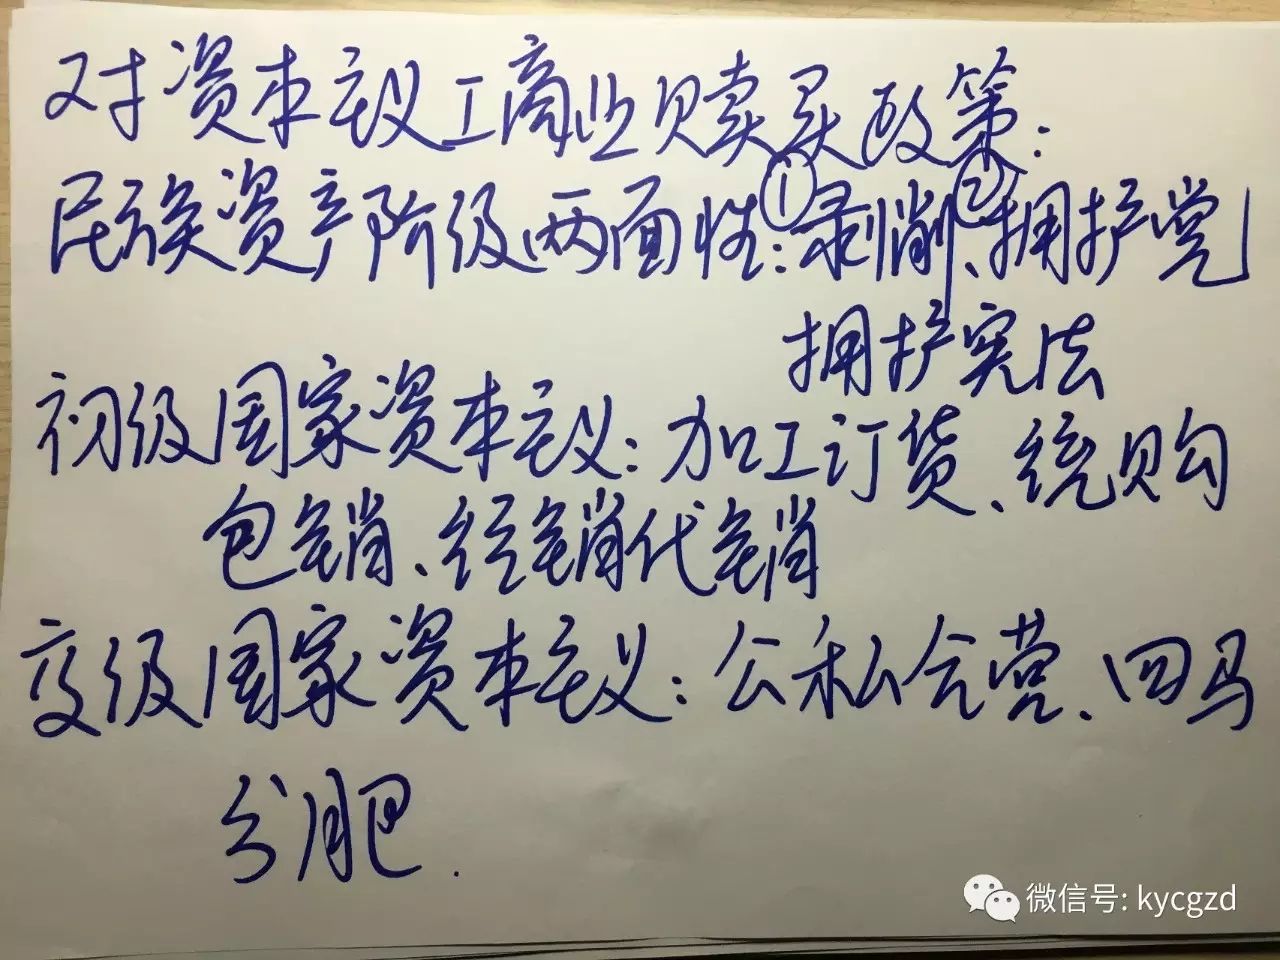 对资本主义工商业赎买政策:
民族资产阶级两面性:①剥削、②拥护党
拥护宪法
初级国家资本主义:加工订货、统购
包销、经销代销
高级国家资本主义:公私合营、四马
分肥.
微信号: kycgzd